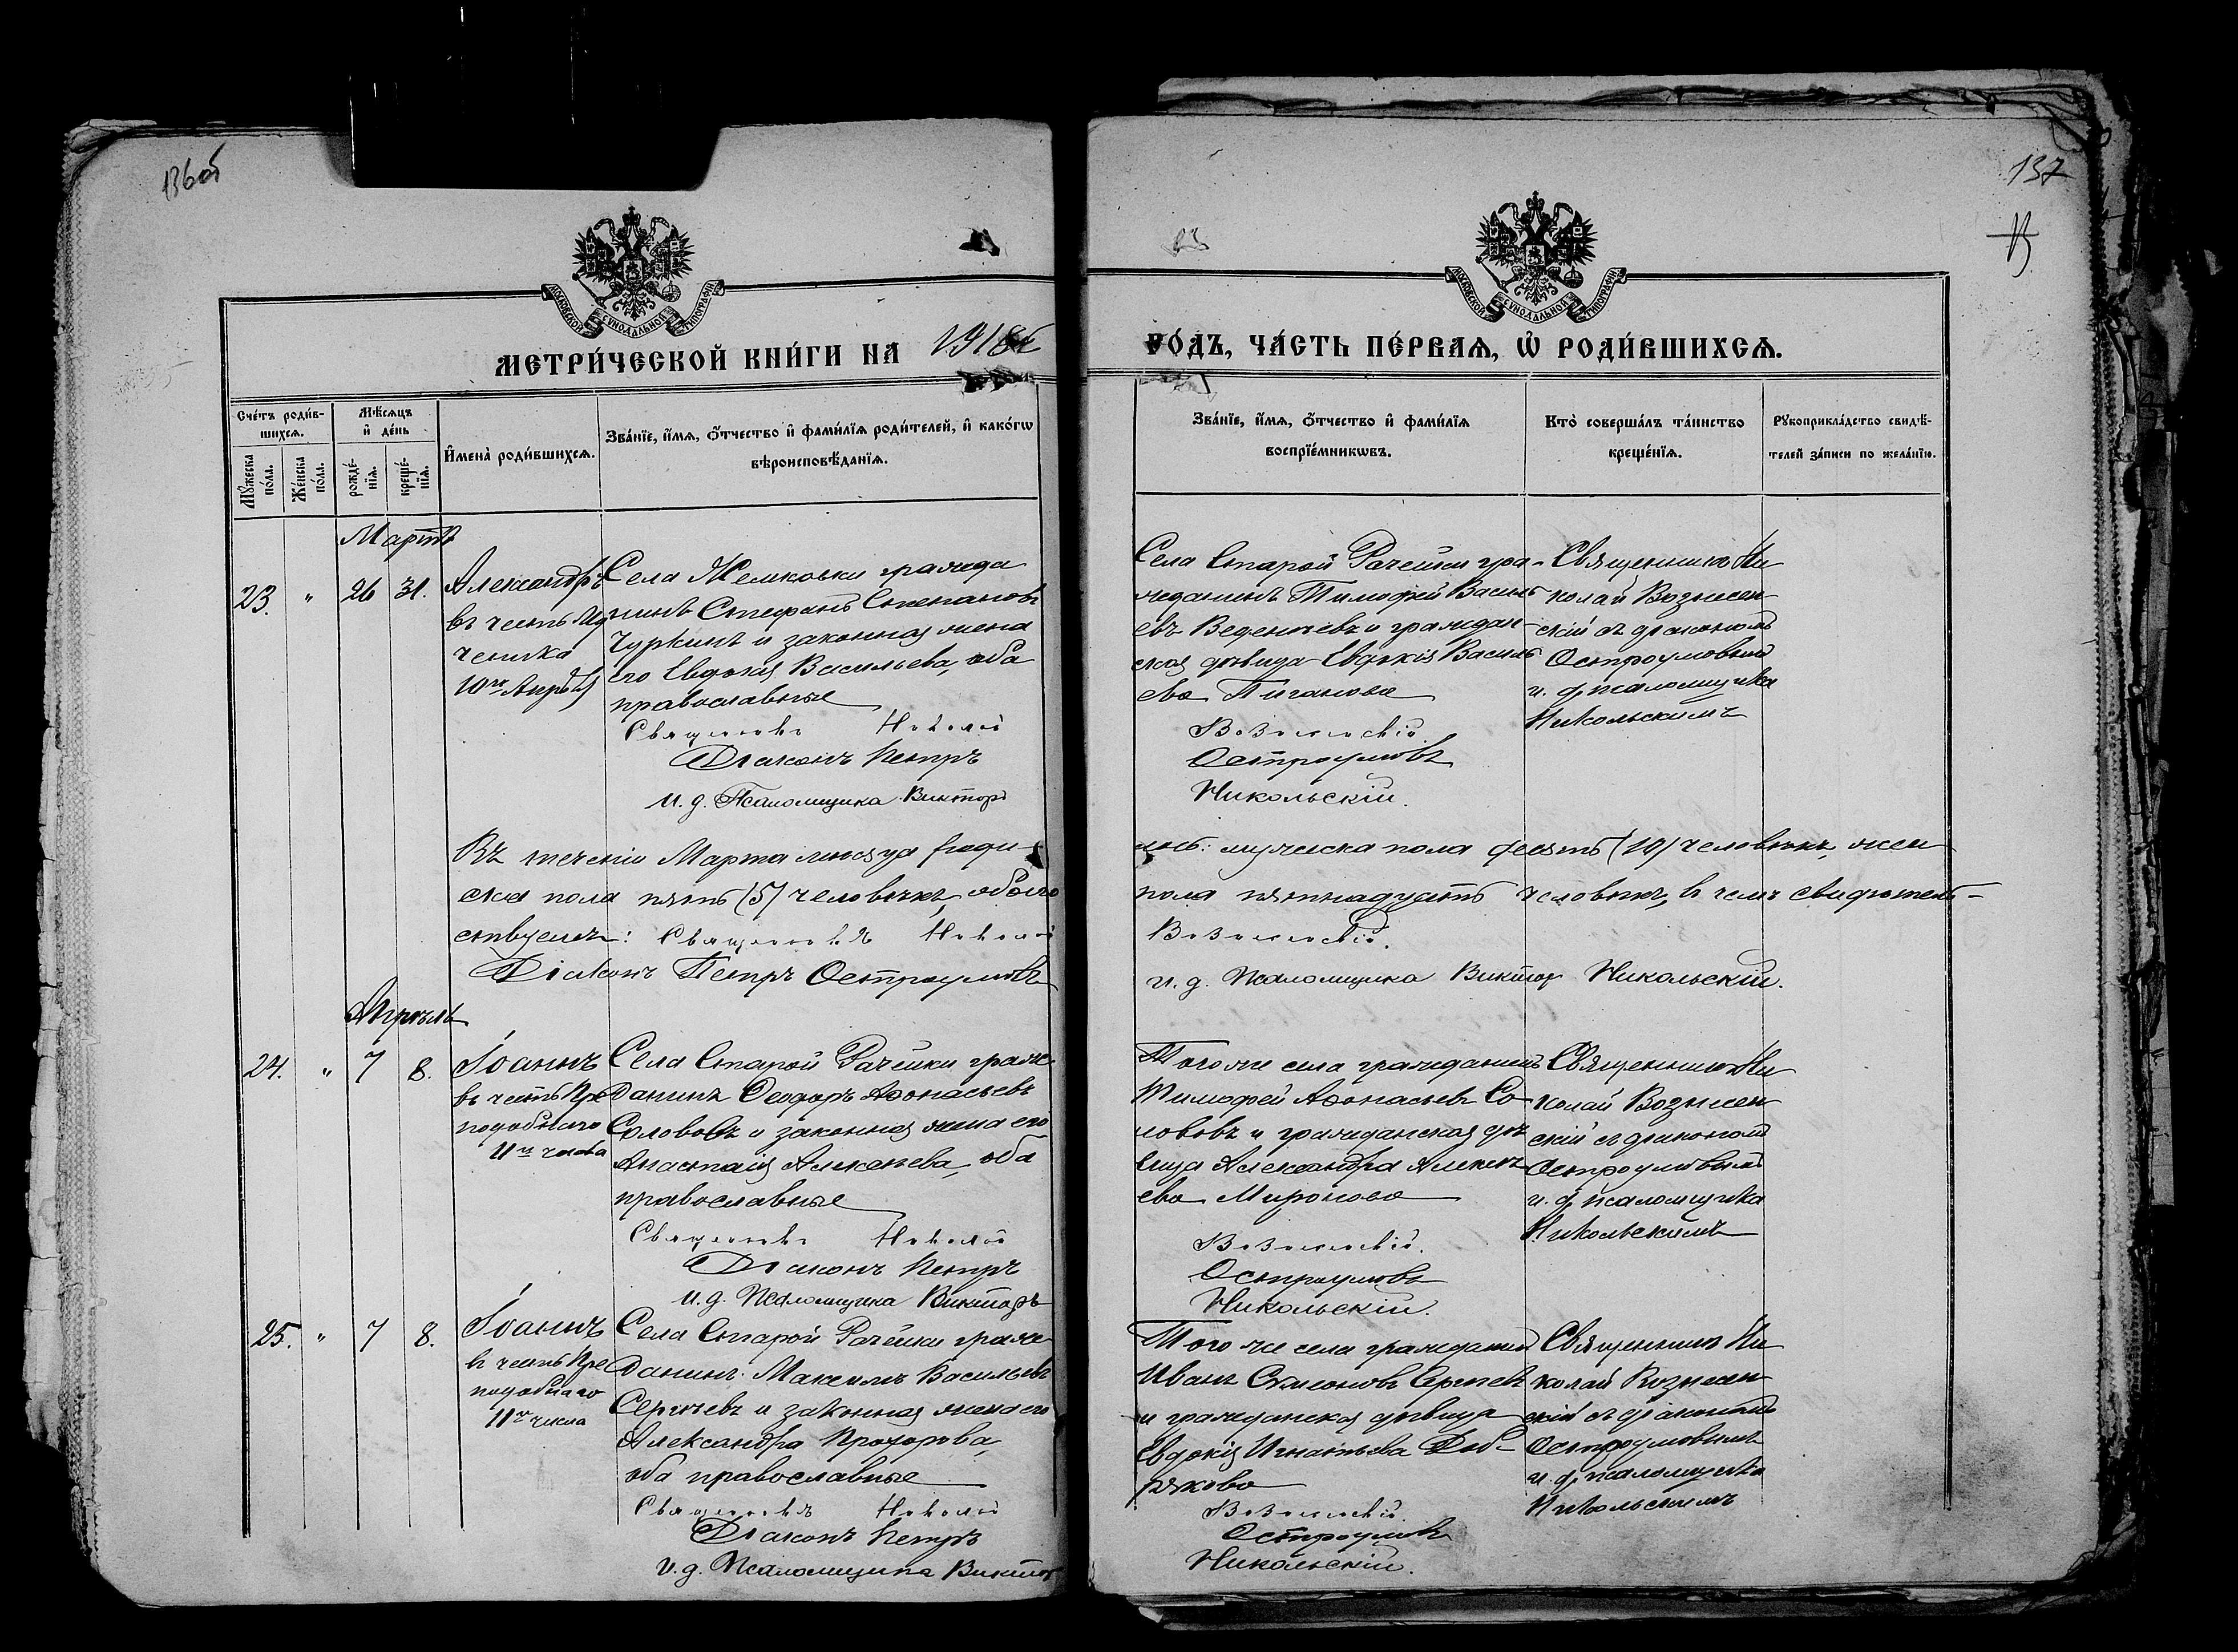 136об
137
13
МОСКОВСКОЙ СУНОДАЛЬНОЙ ТИПОГРАФІИ
МОСКОВСКОЙ СУНОДАЛЬНОЙ ТИПОГРАФІИ
МЕТРИ́ЧЕСКОЙ КНИ́ГИ НА 1918й
ГО́ДЪ, ЧА́СТЬ ПЕ́РВАЯ, Ѡ РОДИ́ВШИХСЯ.
Сче́тъ роди́вшихся.
Му́жеска по́ла.
Же́нска по́ла.
Мѣ́сяцъ и҆ де́нь
рожде́нїя.
креще́нїя.
И҆мена̀ роди́вшихся.
Зва́нїе, и҆́мя, ѻ҆́тчество и҆ фами́лїя роди́телей, и҆ како́гѡ
вѣроисповѣ́данїя.
Зва́нїе, и҆́мя, ѻ҆́тчество и҆ фами́лїя
воспрїе́мникѡвъ.
Кто̀ соверша́лъ та́инство
креще́нїя.
Рꙋкоприкла́дство свидѣ́-
телей за́писи по жела́нїю.
Мартъ
23. " 26 31.
Александръ
въ честь Му
ченика
10го Апрѣля
Села Жемковки гражда
нинъ Стефанъ Степановъ
Чуркинъ и законная жена
его Евдокія Васильева, оба
православные
Священникъ Николай
Діаконъ Петръ
И. д. Псаломщика Викторъ
Села Старой Рачейки гра-
жданинъ Тимофей Василь
евъ Веденичевъ и граждан-
ская дѣвица Евдокія Василь
ева Пиганова
Вознесенскій.
Остроумовъ
Никольскій.
Священникъ Ни
колай Вознесен-
скій съ діакономъ
Остроумовымъ
и. д. псаломщика
Никольскимъ
Въ теченіи Марта мѣсяца роди-
лось: мужеска пола десять (10) человѣкъ, жен
ска пола пять (5) человѣкъ, обоего
пола пятнадцать человѣкъ, въ чемъ свидѣтель-
ствуемъ: Священникъ Николай
Вознесенскій.
Діаконъ Петръ Остроумовъ
и. д. Псаломщика Викторъ Никольскій.
Апрѣль
24. " 7 8.
Іоаннъ
въ честь Пре
подобнаго
11го числа
Села Старой Рачейки граж-
данинъ Ѳеодоръ Аѳонасьевъ
Солововъ и законная жена его
Анастасія Алексѣева, оба
православные
Священникъ Николай
Діаконъ Петръ
И. д. Псаломщика Викторъ
Того же села гражданинъ
Тимофей Аѳонасьевъ Со-
лововъ и гражданская дѣ
вица Александра Алексѣ
ева Миронова
Вознесенскій.
Остроумовъ
Никольскій.
Священникъ Ни
колай Вознесен
скій съ діакономъ
Остроумовымъ
и. д. псаломщика
Никольскимъ
25. " 7 8.
Іоаннъ
въ честь Пре
подобнаго
11го числа
Села Старой Рачейки граж
данинъ Максимъ Васильевъ
Сергѣевъ и законная жена его
Александра Прохорова,
оба православные
Священникъ Николай
Діаконъ Петръ
И. д. Псаломщика Викторъ
Того же села гражданинъ
Иванъ Симеоновъ Сергѣевъ
и гражданская дѣвица
Евдокія Игнатьева Доб-
рякова
Вознесенскій.
Остроумовъ
Никольскій.
Священникъ Ни
колай Вознесен
скій съ діакономъ
Остроумовымъ
и. д. псаломщика
Никольскимъ